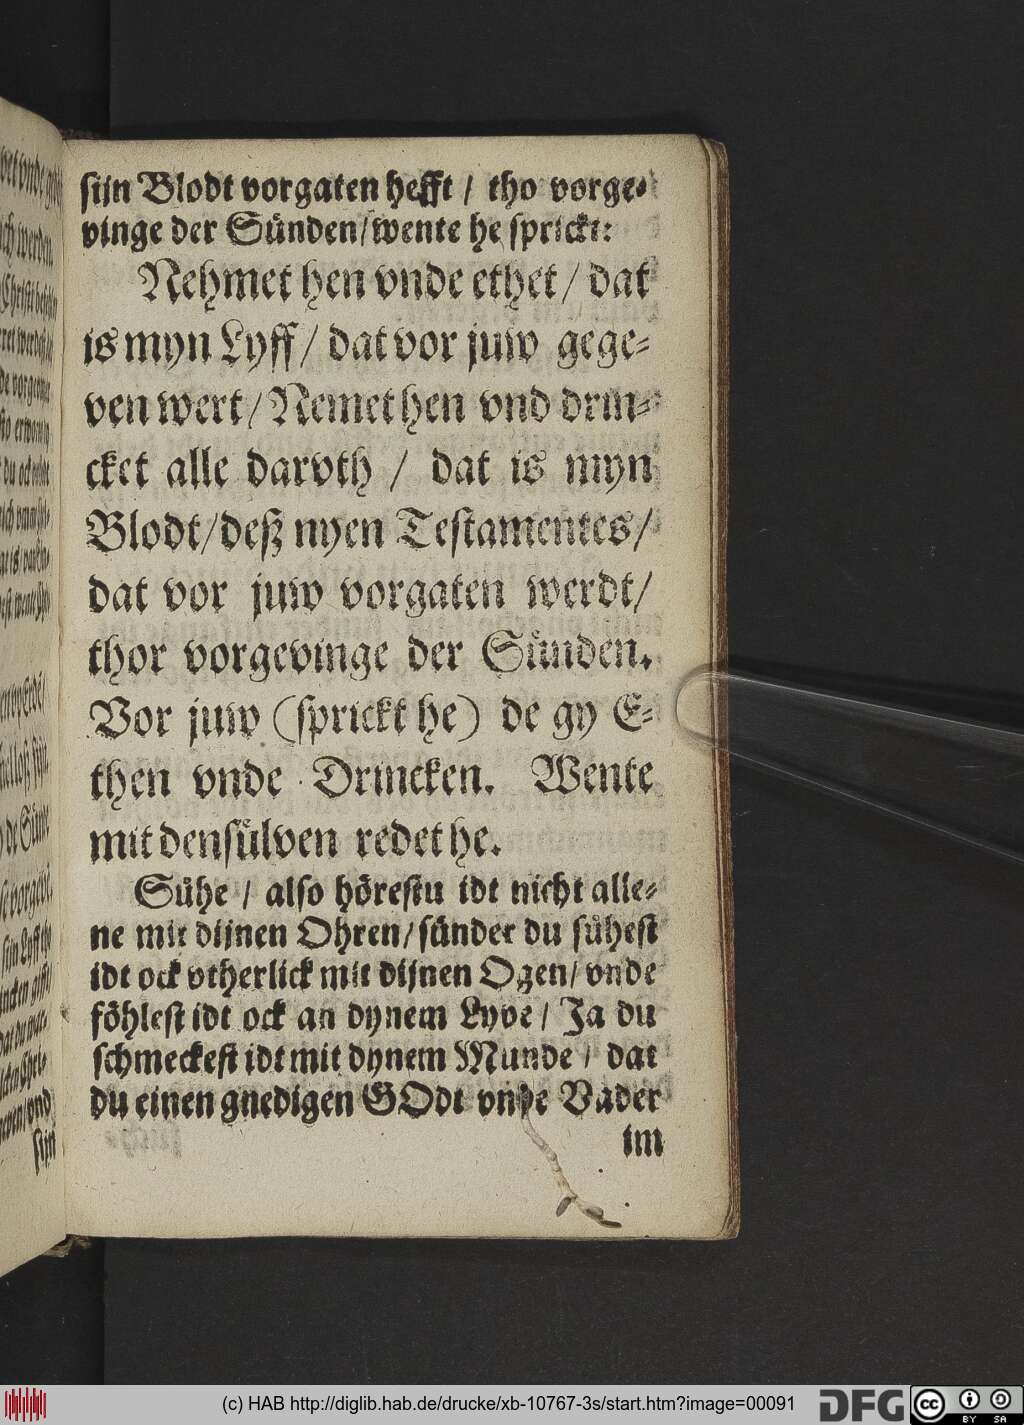 sijn Blodt vorgaten hefft / tho vorge-
vinge der Sünden/wente he sprickt:
Nehmet hen vnde ethet / dat
is myn Lyff / dat vor juw gege-
ven wert / Nemet hen vnd drin-
cket alle darvth / dat is myn
Blodt/deß nyen Testamentes/
dat vor juw vorgaten werdt/
thor vorgevinge der Sünden.
Vor juw (sprickt he) de gy E-
then vnde Drincken. Wente
mit densülven redet he.
Sühe / also hörestu idt nicht alle-
ne mit dijnen Ohren/sünder du sühest
idt ock vtherlick mit dijnen Ogen/vnde
föhlest idt ock an dynem Lyve / Ja du
schmeckest idt mit dynem Munde / dat
du einen gnedigen GOdt vnde Vader
im
(c) HAB http://diglib.hab.de/drucke/xb-10767-3s/start.htm?image=00091
DFG
cc
BY SA